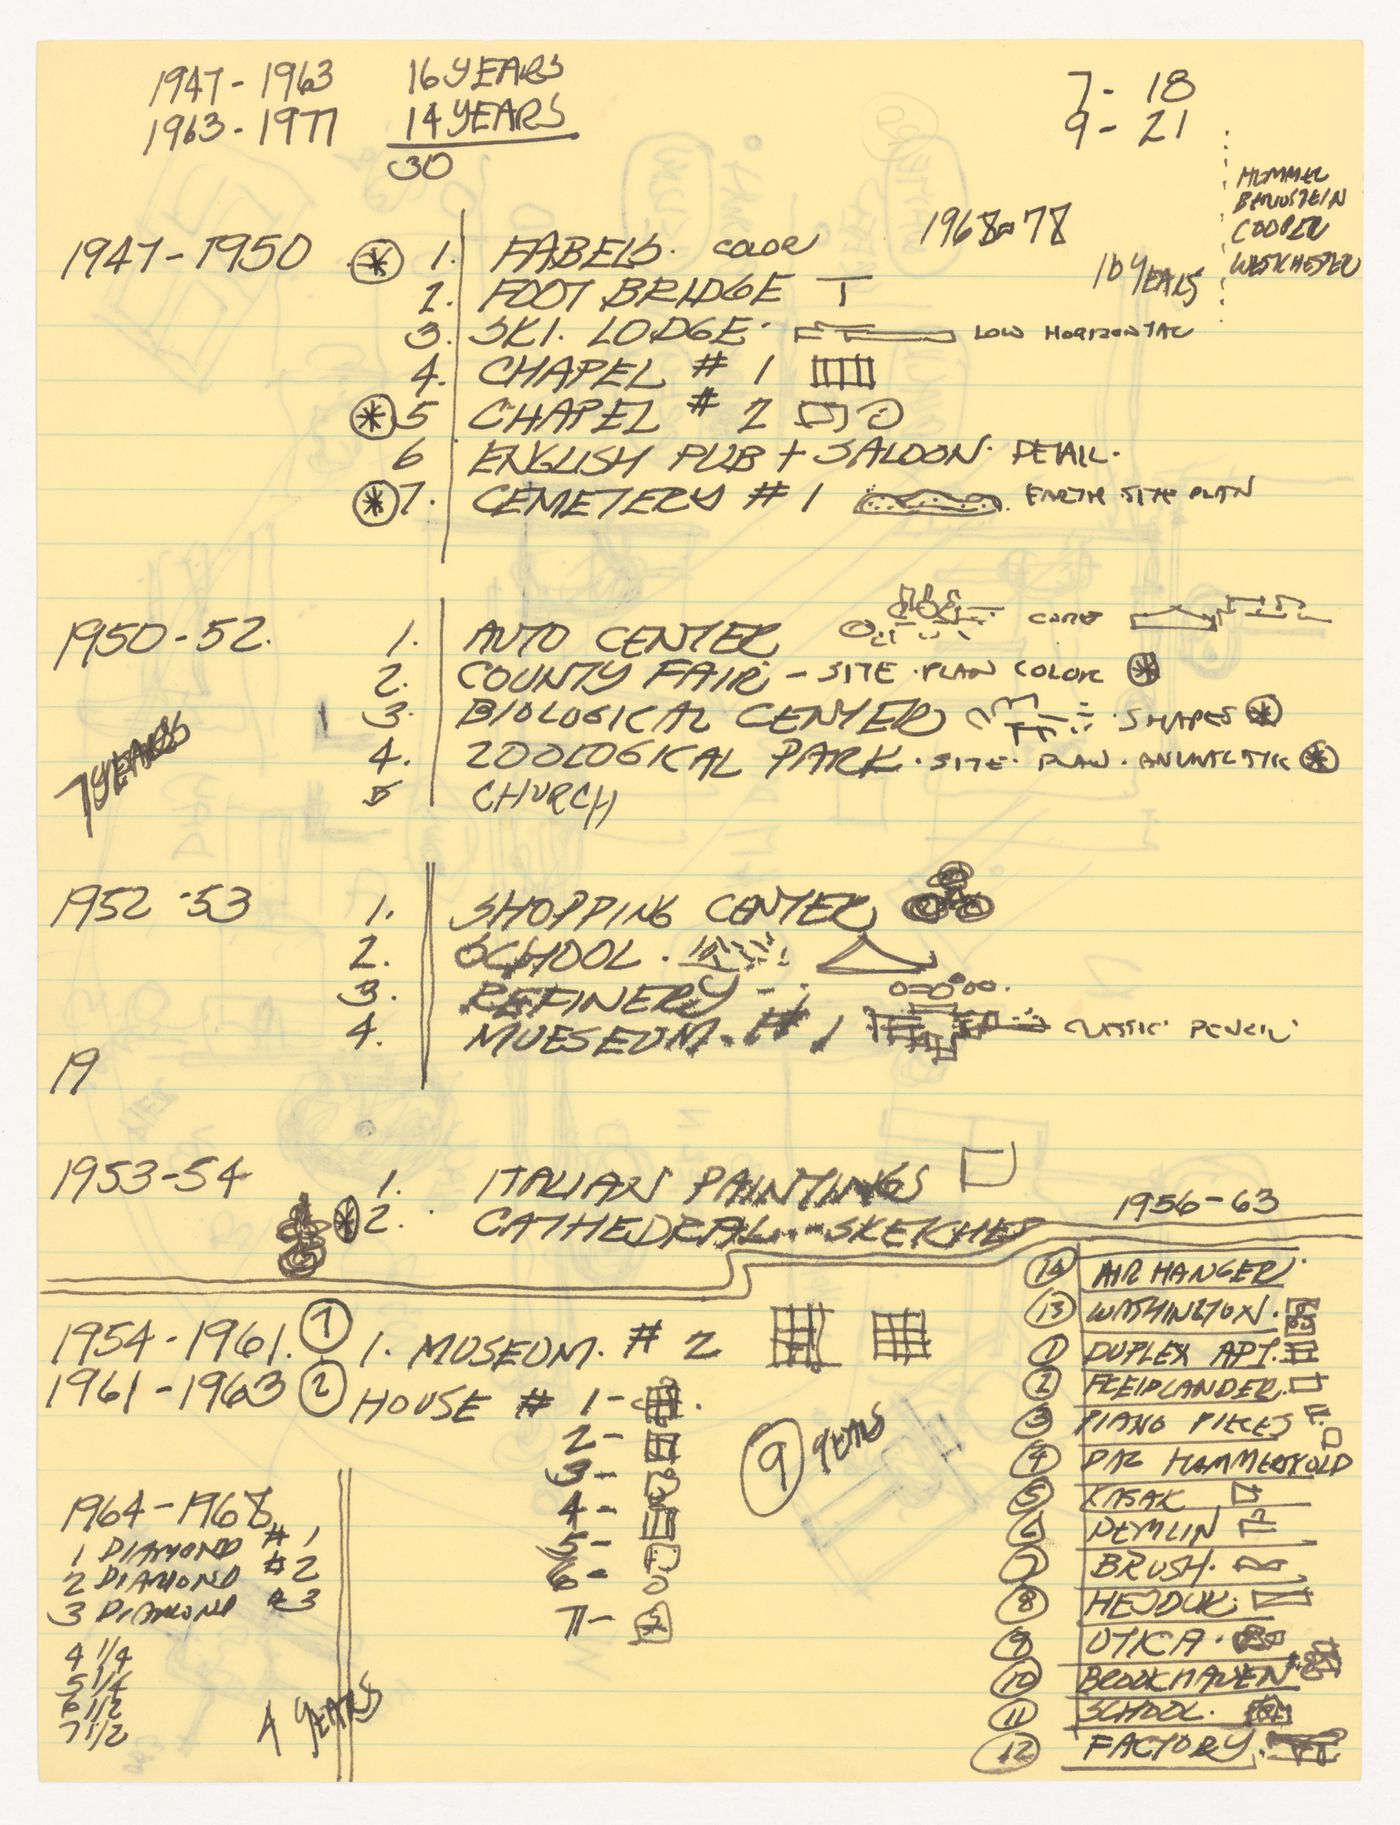 1947-1963 16 YEARS
1963-1977 14 YEARS
30
7- 18
9- 21
HUMMEL
BERNSTEIN
COOPER
WESTCHESTER
1968-78
10 YEARS
1947-1950
1. FABELS. COLOR
2. FOOT BRIDGE
3. SKI. LODGE. LOW HORIZONTAL
4. CHAPEL # 1
5 CHAPEL # 2
6 ENGLISH PUB + SALOON. DETAIL.
7. CEMETERY # 1 EARTH SITE PLAN
1950-52.
1. AUTO CENTER
2. COUNTY FAIR - SITE PLAN COLOR
3. BIOLOGICAL CENTER SHAPES
4. ZOOLOGICAL PARK. SITE. PLAN.
5 CHURCH
7 YEARS
1952-53
1. SHOPPING CENTER
2. SCHOOL.
3. REFINERY -
4. MUESEUM. # 1 PENCIL
19
1953-54
1. ITALIAN PAINTINGS
2. CATHEDRAL--SKETCHES
1954-1961. 1 1. MUSEUM. # 2
1961-1963 2 HOUSE # 1-
2-
3-
4-
5-
6-
7-
9 YEARS
1964-1968
1 DIAMOND #1
2 DIAMOND #2
3 DIAMOND #3
4 1/4
5 1/4
6 1/2
7 1/2
4 YEARS
1956-63
14 AIR HANGER.
13 WASHINGTON.
1 DUPLEX APT.
2 FLEIDLANDER.
3 PIANO PIECES
4 DAG HAMMERSKOLD
5 KASAK
6 DEMLIN
7 BRUSH.
8 HEJDUK.
9 UTICA.
10 BROOKHAVEN
11 SCHOOL.
12 FACTORY.